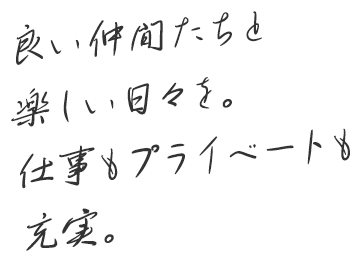 良い仲間たちと
楽しい日々を。
仕事もプライベートも
充実。